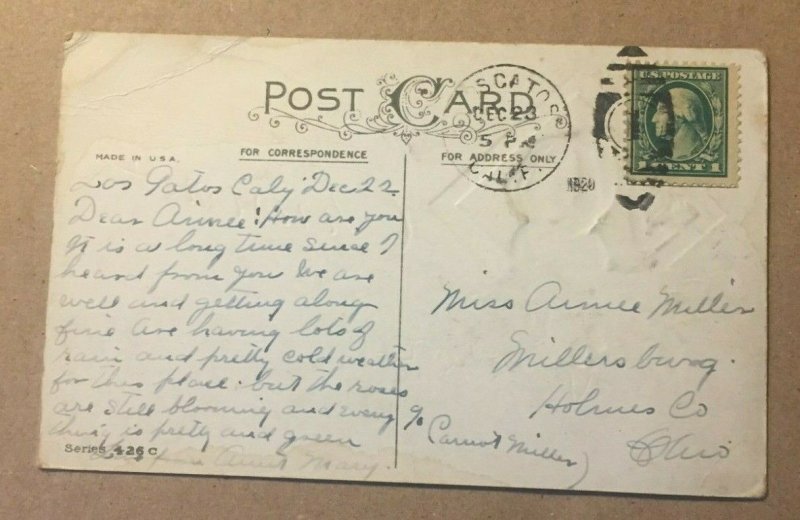 POST CARD
LOS GATOS
DEC 23
5 PM
CALIF.
1920
U.S. POSTAGE
1 CENT 1
MADE IN U.S.A.
FOR CORRESPONDENCE
FOR ADDRESS ONLY
Los Gatos Caly Dec 22
Dear Aimee! How are you
It is a long time since I
heard from you We are
well and getting along
fine Are having lots of
rain and pretty cold weather
for this place. but the roses
are still blooming and every
thing is pretty and green
Aunt Mary.
Series 426 C
Miss Aimee Miller
Millersburg.
Holmes Co
Ohio
c/o
Carnot Miller)